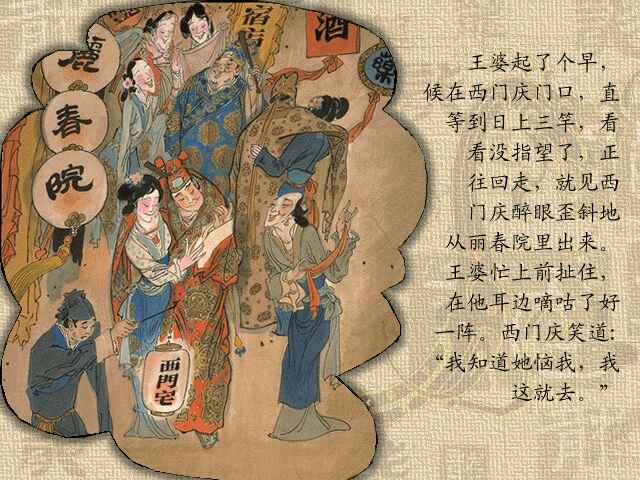 麗
春
院
宿店
酒
藥
西門宅
王婆起了个早，
候在西门庆门口，直
等到日上三竿，看
看没指望了，正
往回走，就见西
门庆醉眼歪斜地
从丽春院里出来。
王婆忙上前扯住，
在他耳边嘀咕了好
一阵。西门庆笑道：
“我知道她恼我，我
这就去。”